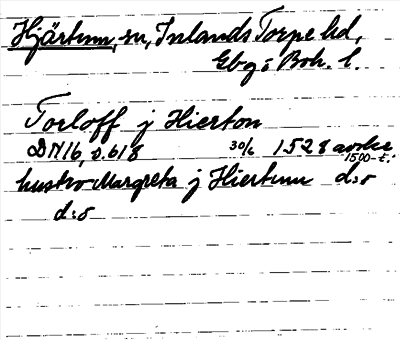 Hjärtum, sn, Inlands Torpe hd,
Gbg o Boh. l.
Torloff j Hierton
DN16, s. 618 30/6 1528 avskr
1500-t.
hustro Margreta j Hiertum d:o
d:o